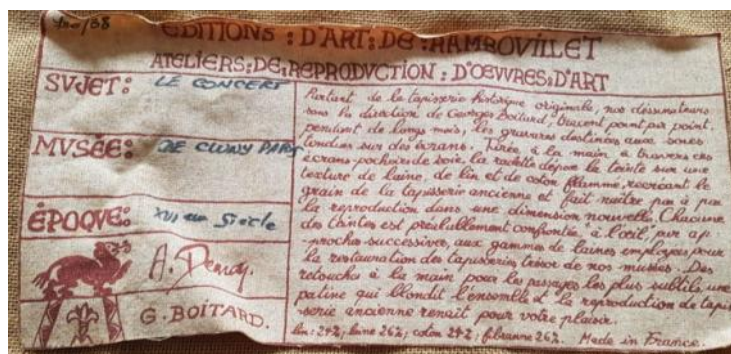 ÉDITIONS : D'ART : DE : RAMBOVILET
ATELIERS : DE : REPRODVCTION : D'OEVVRES : D'ART
SVJET : LE CONCERT
MVSÉE : DE CLUNY PARIS
ÉPOQVE : XVI eme Siecle
G. BOITARD.
Partant de la tapisserie historique originale, nos dessinateurs
sous la direction de Georges Boitard, tracent point par point,
pendant de longs mois, les gravures destinées aux soies
tendues sur des écrans. Tirée à la main à travers ces
écrans-pochoirs de soie, la raclette dépose la teinte sur une
texture de laine, de lin et de coton flammé, recréant le
grain de la tapisserie ancienne et fait naître pas à pas
la reproduction dans une dimension nouvelle. Chacune
des teintes est préalablement confrontée "à l'œil", par ap-
proches successives, aux gammes de laines employées pour
la restauration des tapisseries trésor de nos musées. Des
retouches à la main pour les passages les plus subtils, une
patine qui blondit l'ensemble et la reproduction de tapis-
serie ancienne renaît pour votre plaisir.
lin : 24% ; laine 26% ; coton 24% ; fibranne 26%. Made in France.